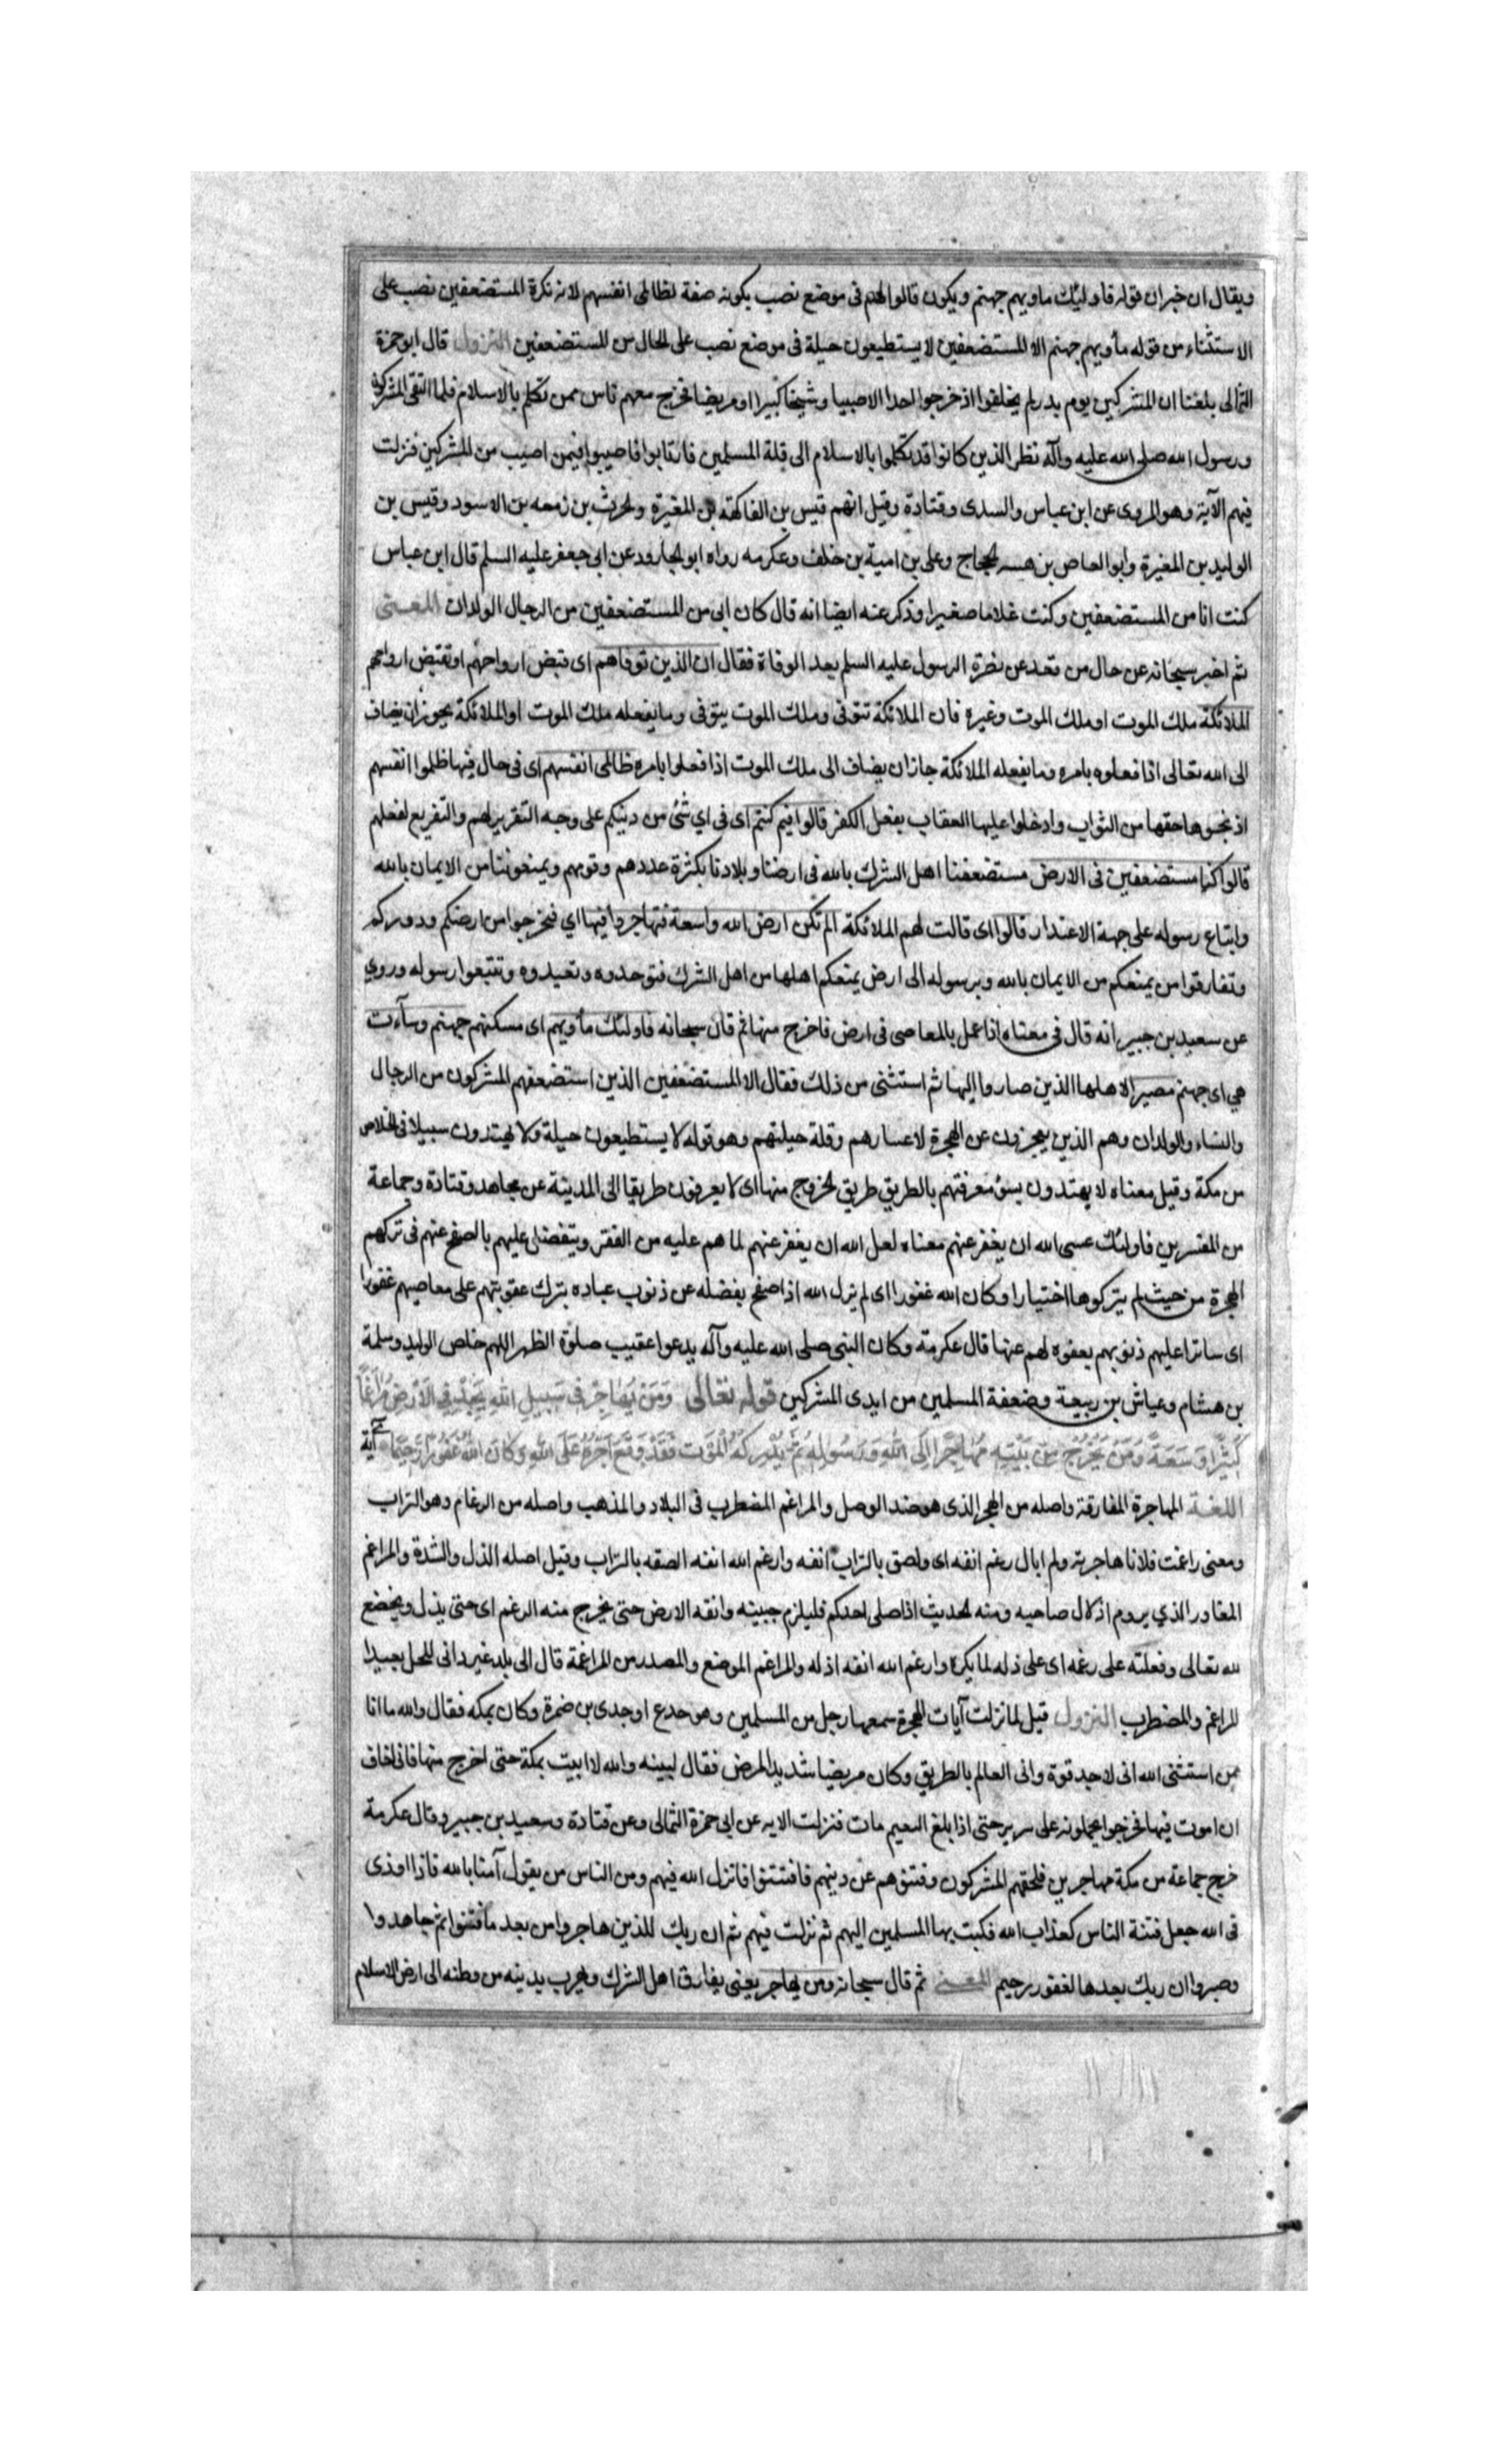 ويقال ان خبران قوله فاولئك ماويهم جهنم ويكون قالوا لهم فى موضع نصب بكونه صفة لظالمى انفسهم لانه نكرة المستضعفين نصب على
الاستثناء من قوله مأويهم جهنم الا المستضعفين لا يستطيعون حيلة فى موضع نصب على الحال من المستضعفين النزول قال ابو حمزة
الثمالى بلغنا ان المشركين يوم بدر لم يخلفوا اذ خرجوا احدا الا صبيا وشيخا كبيرا او مريضا فخرج معهم ناس ممن تكلم بالاسلام فلما التقى المشركون
ورسول الله صلى الله عليه وآله نظر الذين كانوا قد تكلموا بالاسلام الى قلة المسلمين فارتابوا فاصيبوا فيمن اصيب من المشركين فنزلت
فيهم الآية وهو المروى عن ابن عباس والسدى وقتادة وقيل انهم قيس بن الفاكهة بن المغيرة والحرث بن زمعه بن الاسود وقيس بن
الوليد بن المغيرة وابو العاص بن الحجاج وعلى بن امية بن خلف وعكرمه رواه ابو الجارود عن ابى جعفر عليه السلم قال ابن عباس
كنت انا من المستضعفين وكنت غلاما صغيرا وذكر عنه ايضا انه قال كان ابى من المستضعفين من الرجال الولدان المعنى
ثم اخبر سبحانه عن حال من قعد عن نصرة الرسول عليه السلم بعد الوفاة فقال ان الذين توفاهم اى قبض ارواحهم او تقبض ارواحهم
الملائكة ملك الموت او ملك الموت وغيره فان الملائكة تتوفى وملك الموت يتوفى وما يفعله ملك الموت او الملائكة يجوز ان يضاف
الى الله تعالى اذا فعلوه بامره وما يفعله الملائكة جاز ان يضاف الى ملك الموت اذا فعلوا بامره ظالمى انفسهم اى فى حال فيها ظلموا انفسهم
اذ بخسوها حقها من الثواب وادخلوا عليها العقاب بفعل الكفر قالوا فيم كنتم اى فى اي شئ من دينكم على وجه التقرير لهم والتقريع لفعلهم
قالوا كنا مستضعفين فى الارض مستضعفنا اهل الشرك بالله فى ارضنا وبلادنا بكثرة عددهم وقوتهم ويمنعوننا من الايمان بالله
واتباع رسوله على جهة الاعتذار قالوا اى قالت لهم الملائكة الم تكن ارض الله واسعة فتهاجروا فيها اي فتخرجوا من ارضكم ودوركم
وتفارقوا من يمنعكم من الايمان بالله وبرسوله الى ارض يمنعكم اهلها من اهل الشرك فتوحدوه وتعبدوه وتتبعوا رسوله وروي
عن سعيد بن جبير انه قال فى معناه اذا عمل بالمعاصى فى ارض فاخرج منها ثم قال سبحانه فاولئك مأويهم اى مسكنهم جهنم وساءت
هي اى جهنم مصيرا لاهلها الذين صاروا اليها ثم استثنى من ذلك فقال الا المستضعفين الذين استضعفهم المشركون من الرجال
والنساء والولدان وهم الذين يعجزون عن الهجرة لاعسارهم وقلة حيلتهم وهو قوله لا يستطيعون حيلة ولا يهتدون سبيلا فى الخلاص
من مكة وقيل معناه لا يهتدون بسوء معرفتهم بالطريق طريق الخروج منها اى لا يعرفون طريقا الى المدينة عن مجاهد وقتادة وجماعة
من المفسرين فاولئك عسى الله ان يغفر عنهم معناه لعل الله ان يغفر عنهم لما هم عليه من الفقر ويتفضل عليهم بالصفح عنهم فى تركهم
الهجرة من حيث لم يتركوها اختيارا وكان الله غفورا اى لم يزل الله اذا صفح بفضله عن ذنوب عباده بترك عقوبتهم على معاصيهم غفورا
اى ساترا عليهم ذنوبهم بعفوه لهم عنها قال عكرمة وكان النبى صلى الله عليه وآله يدعوا عقيب صلوة الظهر اللهم خلص الوليد وسلمة
بن هشام وعياش بن ربيعة وضعفة المسلمين من ايدى المشركين قوله تعالى وَمَنْ يُهَاجِرْ فِى سَبِيلِ اللهِ يَجِدْ فِى الْاَرْضِ مُرَاغَمًا
كَثِيرًا وَسَعَةً وَمَنْ يَخْرُجْ مِنْ بَيْتِهِ مُهَاجِرًا اِلَى اللهِ وَرَسُولِهِ ثُمَّ يُدْرِكْهُ الْمَوْتُ فَقَدْ وَقَعَ اَجْرُهُ عَلَى اللهِ وَكَانَ اللهُ غَفُورًا رَحِيمًا آية
اللغة المهاجرة المفارقة واصله من الهجر الذى هو ضد الوصل والمراغم المضطرب فى البلاد والمذهب واصله من الرغام وهو التراب
ومعنى راغمت فلانا هاجرته ولم ابال رغم انفه اى ولصق بالتراب انفه وارغم الله انفه الصقه بالتراب وقيل اصله الذل والشدة والمراغم
المعاد الذي يروم اذلال صاحبه ومنه الحديث اذا صلى احدكم فليلزم جبينه وانفه الارض حتى يخرج منه الرغم اى حتى يذل ويخضع
لله تعالى وفعلته على رغمه اى على ذله لما يكره وارغم الله انفه اذله والمراغم الموضع والمصدر من المراغمة قال الى بلد غير دانى المحل بعيد
المراغم والمضطرب النزول قيل لما نزلت آيات الهجرة سمعها رجل من المسلمين وهو جدع او جدى بن ضمرة وكان بمكه فقال والله ما انا
ممن استثنى الله انى لاجد قوة وانى العالم بالطريق وكان مريضا شديد المرض فقال لبنيه والله لا ابيت بمكة حتى اخرج منها فانى اخاف
ان اموت فيها فخرجوا يحملونه على سرير حتى اذا بلغ النعيم مات فنزلت الايه عن ابى حمزة الثمالى وعن قتادة وسعيد بن جبير وقال عكرمة
خرج جماعة من مكة مهاجرين فلحقهم المشركون وفتنوهم عن دينهم فافتتنوا فانزل الله فيهم ومن الناس من يقول آمنا بالله فاذا اوذى
فى الله جعل فتنة الناس كعذاب الله فكتب بها المسلمين اليهم ثم نزلت فيهم ثم ان ربك للذين هاجروا من بعد ما فتنوا ثم جاهدوا
وصبروا ان ربك بعدها لغفور رحيم المعنى ثم قال سبحانه ومن يهاجر يعنى يفارق اهل الشرك ويهرب بدينه من وطنه الى ارض الاسلام